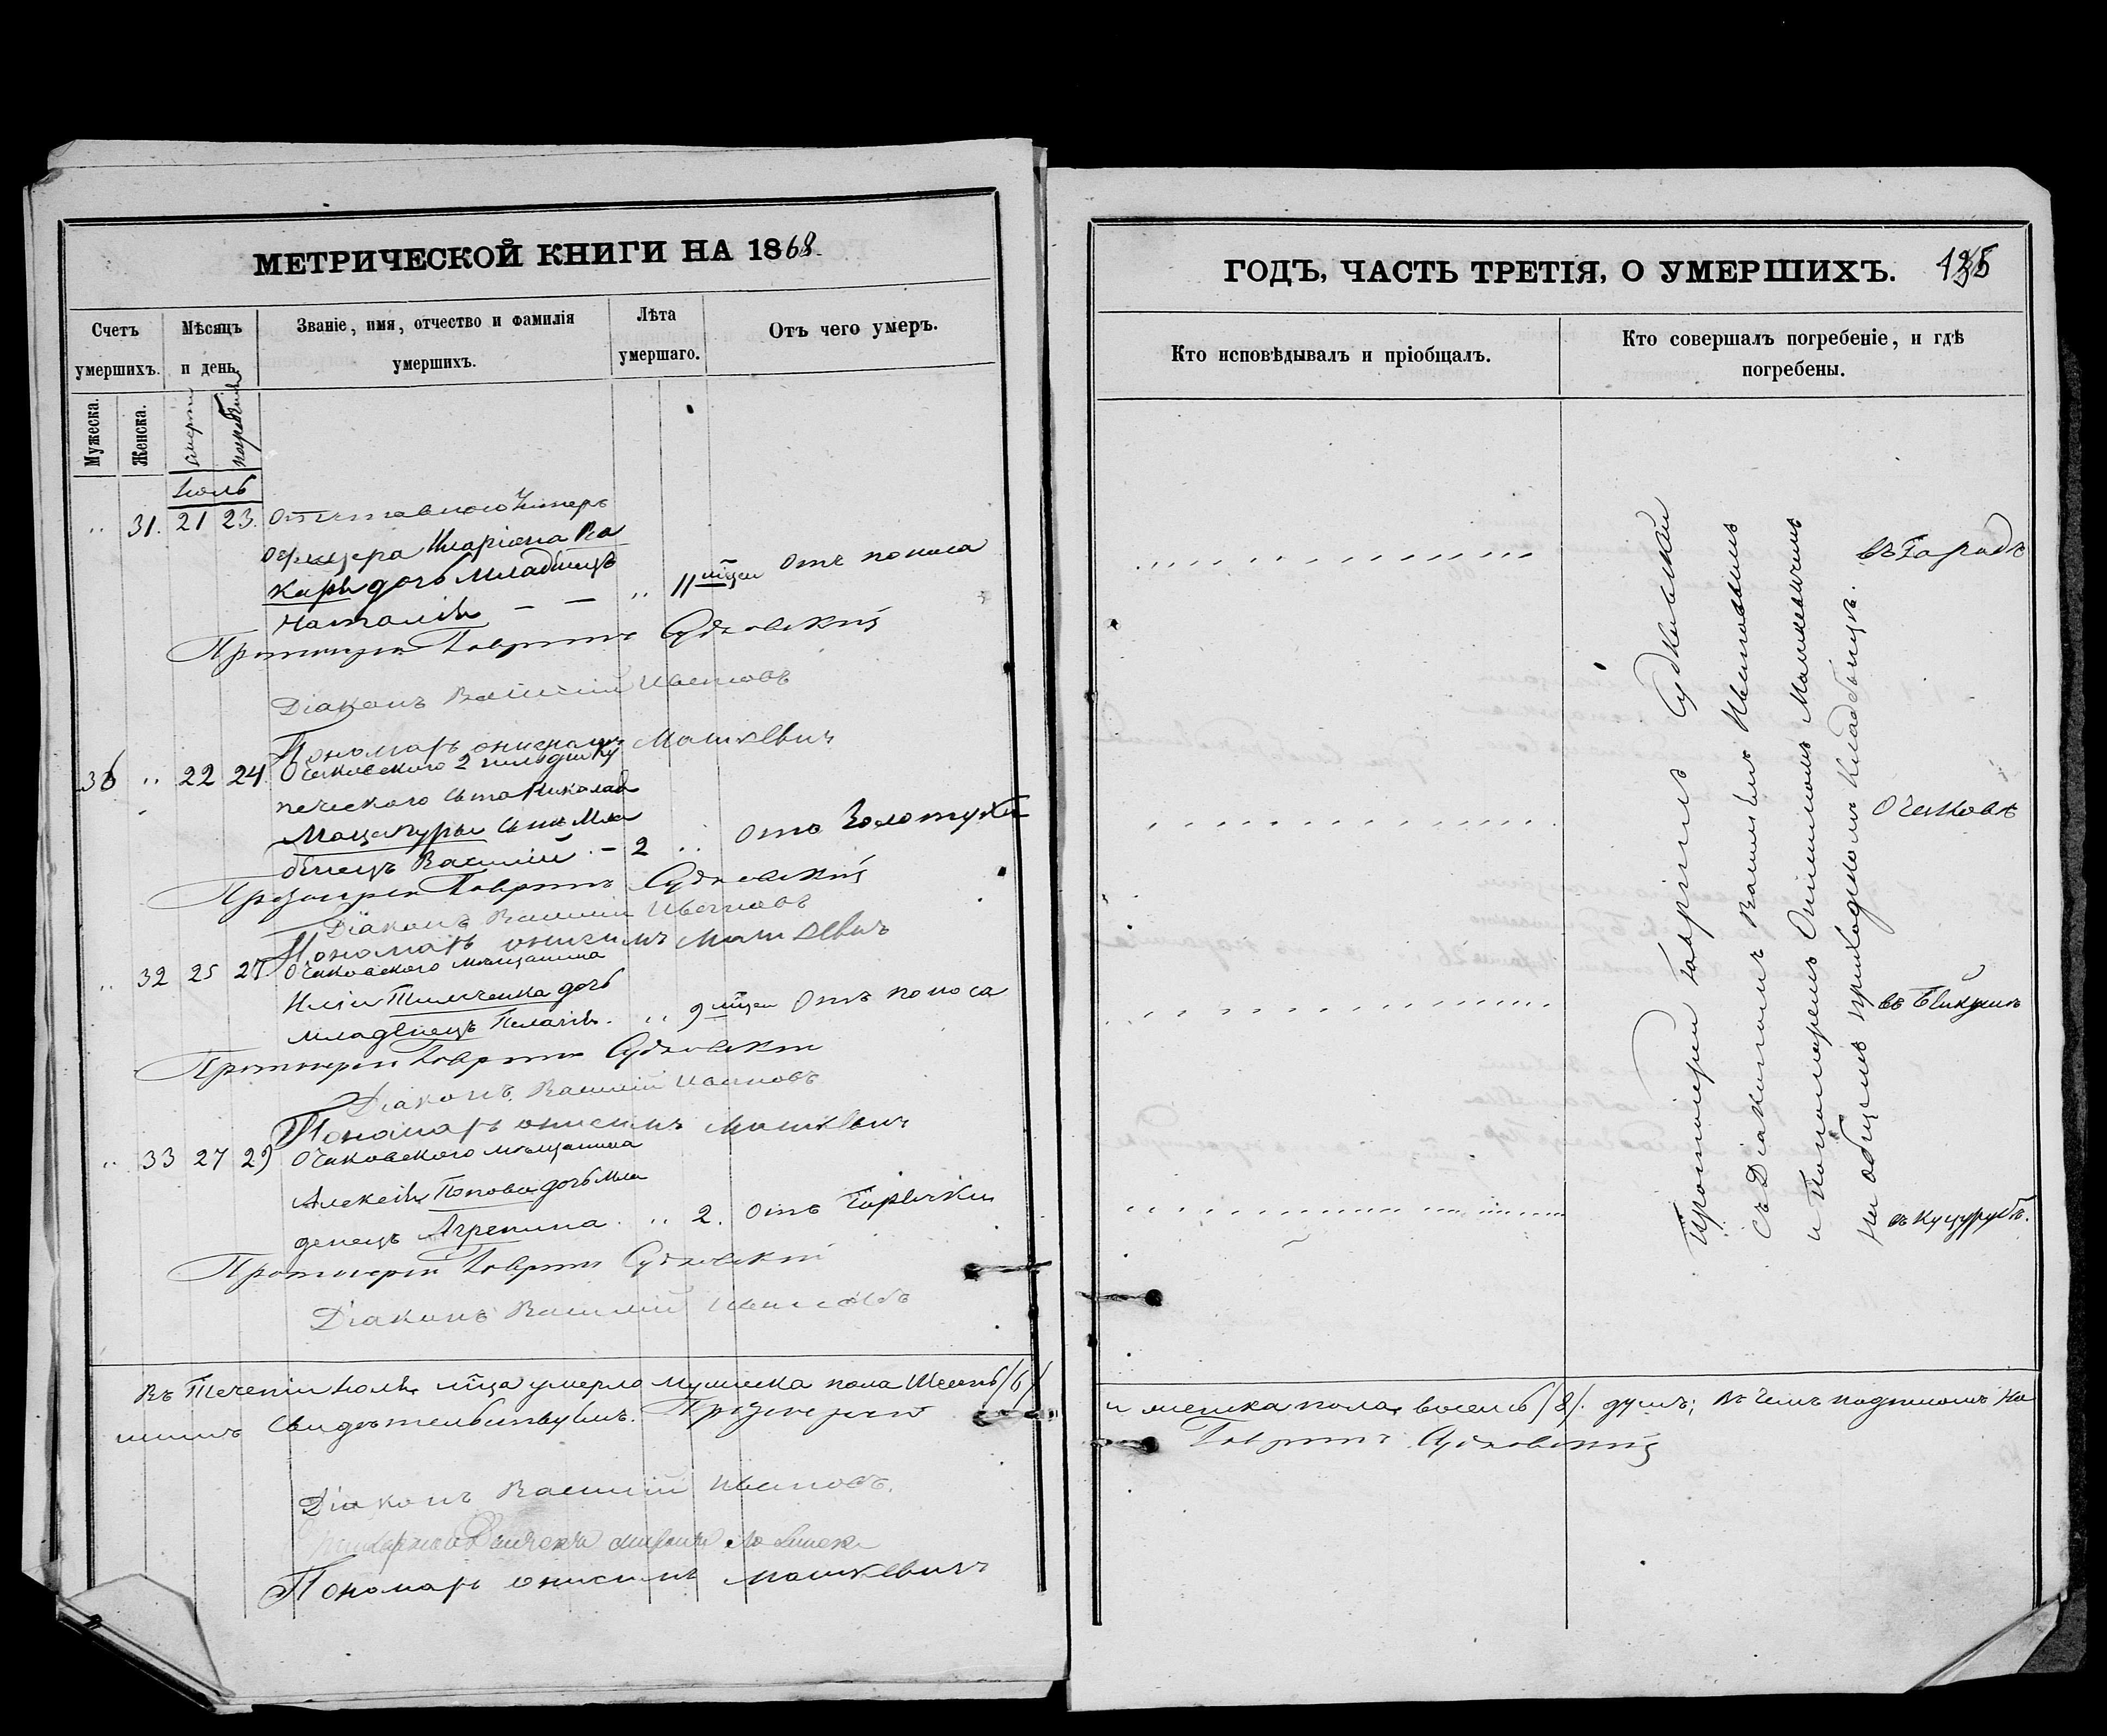 МЕТРИЧЕСКОЙ КНИГИ НА 1868.
Счетъ умершихъ.
Мѣсяцъ и день.
Званіе, имя, отчество и фамилія умершихъ.
Лѣта умершаго.
Отъ чего умеръ.
Мужеска.
Женска.
смерти
погребенія
Іюль
„ 31. 21 23. Отставного Унтеръ
офицера Иларіона Ка
каръ дочь Младенецъ
Наталія – – „ 11 мцеи Отъ поноса
Протоіерей Гавріилъ Судковскій
Діаконъ Василій Ивановъ
Пономарь Онисимъ Машкевичъ
36 „ 22 24. Очаковского 2 гильдіи Ку
печеского сына Николая
Мацапуры сынъ Мла
денецъ Василій – 2 „ Отъ Золотухи
Протоіерей Гавріилъ Судковскій
Діаконъ Василій Ивановъ
Пономарь Онисимъ Машкевичъ
„ 32 25 27 Очаковского мѣщанина
Иліи дочь
младенецъ Пелагія. „ 9 мцеи Отъ поноса
Протоіерей Гавріилъ Судковскій
Діаконъ Василій Ивановъ
Пономарь Онисимъ Машкевичъ
„ 33 27 29 Очаковского мѣщанина
Алексѣя Попова дочь Мла
денецъ Агрепина „ 2. Отъ Горячки
Протоіерей Гавріилъ Судковскій
Діаконъ Василій Ивановъ
Въ Теченіи Іюля мца умерло мужеска пола Шесть /6/
шимъ Свидѣтельствуемъ. Протоіерей
Діаконъ Василій Ивановъ.
Пономарь Онисимъ Машкевичъ
ГОДЪ, ЧАСТЬ ТРЕТІЯ, О УМЕРШИХЪ.
Кто исповѣдывалъ и пріобщалъ.
Кто совершалъ погребеніе, и гдѣ погребены.
Протоіерей Гавріилъ Судковскій
съ Діакономъ Василіемъ Ивановымъ
и Пономаремъ Онисимомъ Машкевичемъ
на общемъ приходскомъ кладбищѣ.
въ Городѣ
Очаковѣ
въ Куцурубѣ.
и женска пола восемь /8/. душъ; въ чемъ подписомъ на
Гавріилъ Судковскій